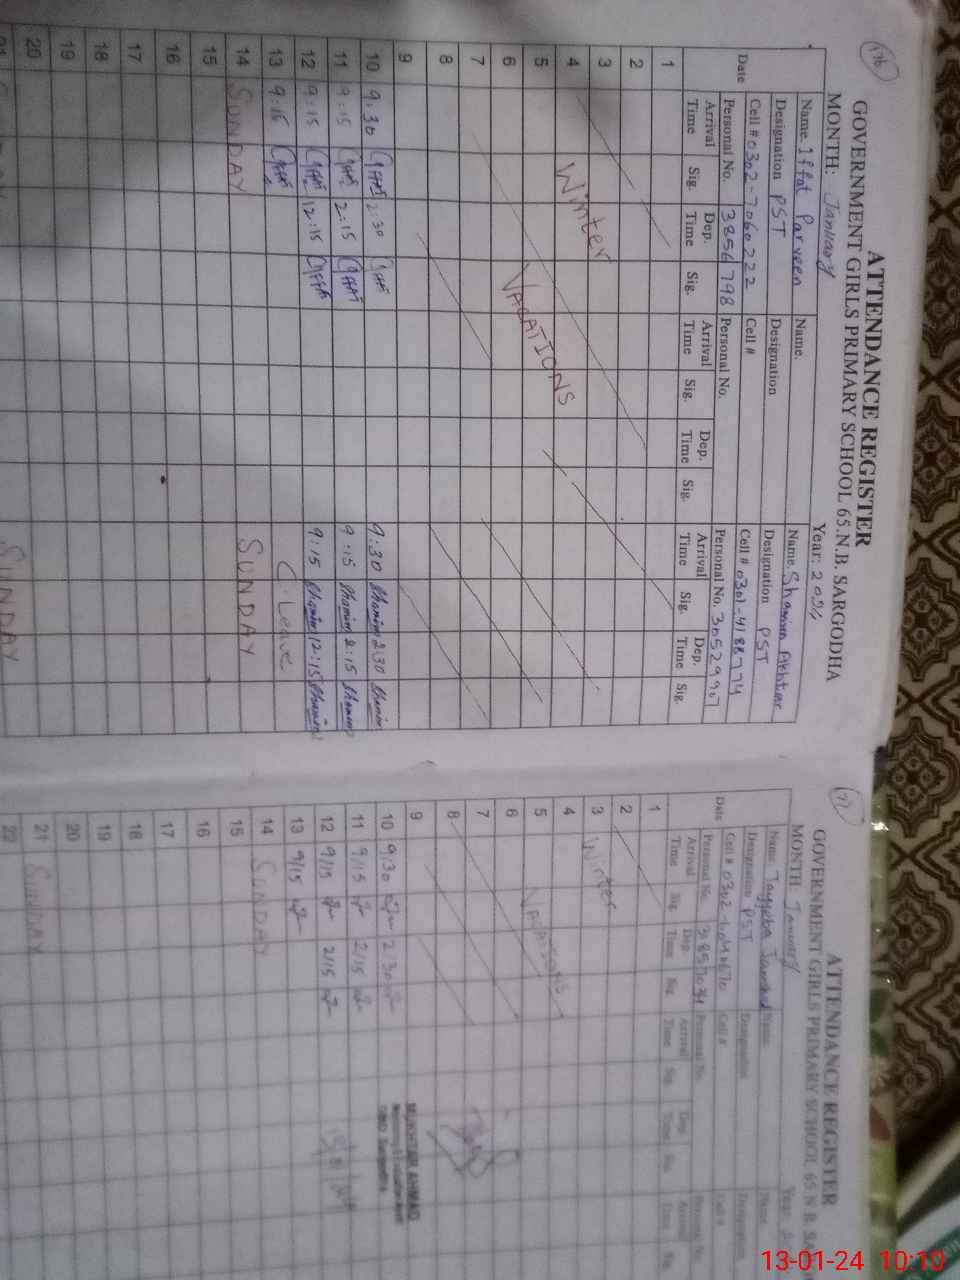 176
ATTENDANCE REGISTER
GOVERNMENT GIRLS PRIMARY SCHOOL 65.N.B. SARGODHA
MONTH: January Year: 2024
Name. Iffat Parveen Name. Name. Shamim Akhtar
Designation PST Designation Designation PST
Cell # 0302-7060222 Cell # Cell # 0301-4188774
Date Personal No. 3856798 Personal No. Personal No. 30529907
Arrival Time Sig. Dep. Time Sig. Arrival Time Sig. Dep. Time Sig. Arrival Time Sig. Dep. Time Sig.
1
2
3
4 Winter
5 VACATIONS
6
7
8
9
10 9:30 2:30 9:30 Shamim 2:30 Shamim
11 9:15 2:15 9:15 Shamim 2:15 Shamim
12 9:15 12:15 9:15 Shamim 12:15 Shamim
13 9:15 C. Leave
14 SUNDAY SUNDAY
15
16
17
18
19
20
21 SUNDAY
77
ATTENDANCE REGISTER
GOVERNMENT GIRLS PRIMARY SCHOOL 65 N.B. SA
MONTH. January Year
Name. Tayyeba Name
Designation PST Designation Name
Cell # Cell # Designation
Date Personal No. Personal No. Cell #
Arrival Time Sig. Dep. Time Sig. Arrival Time Sig. Dep. Time Sig. Arrival Time
1
2
3 Winter
4
5 Vacations
6
7
8
9
10 9/30 2/30
11 9/15 2/15
12 9/15 2/15
13 9/15
14 SUNDAY
15
16
17
18
19
20
21 SUNDAY
22
MUKHTAR AHMAD
13-01-24 10:10